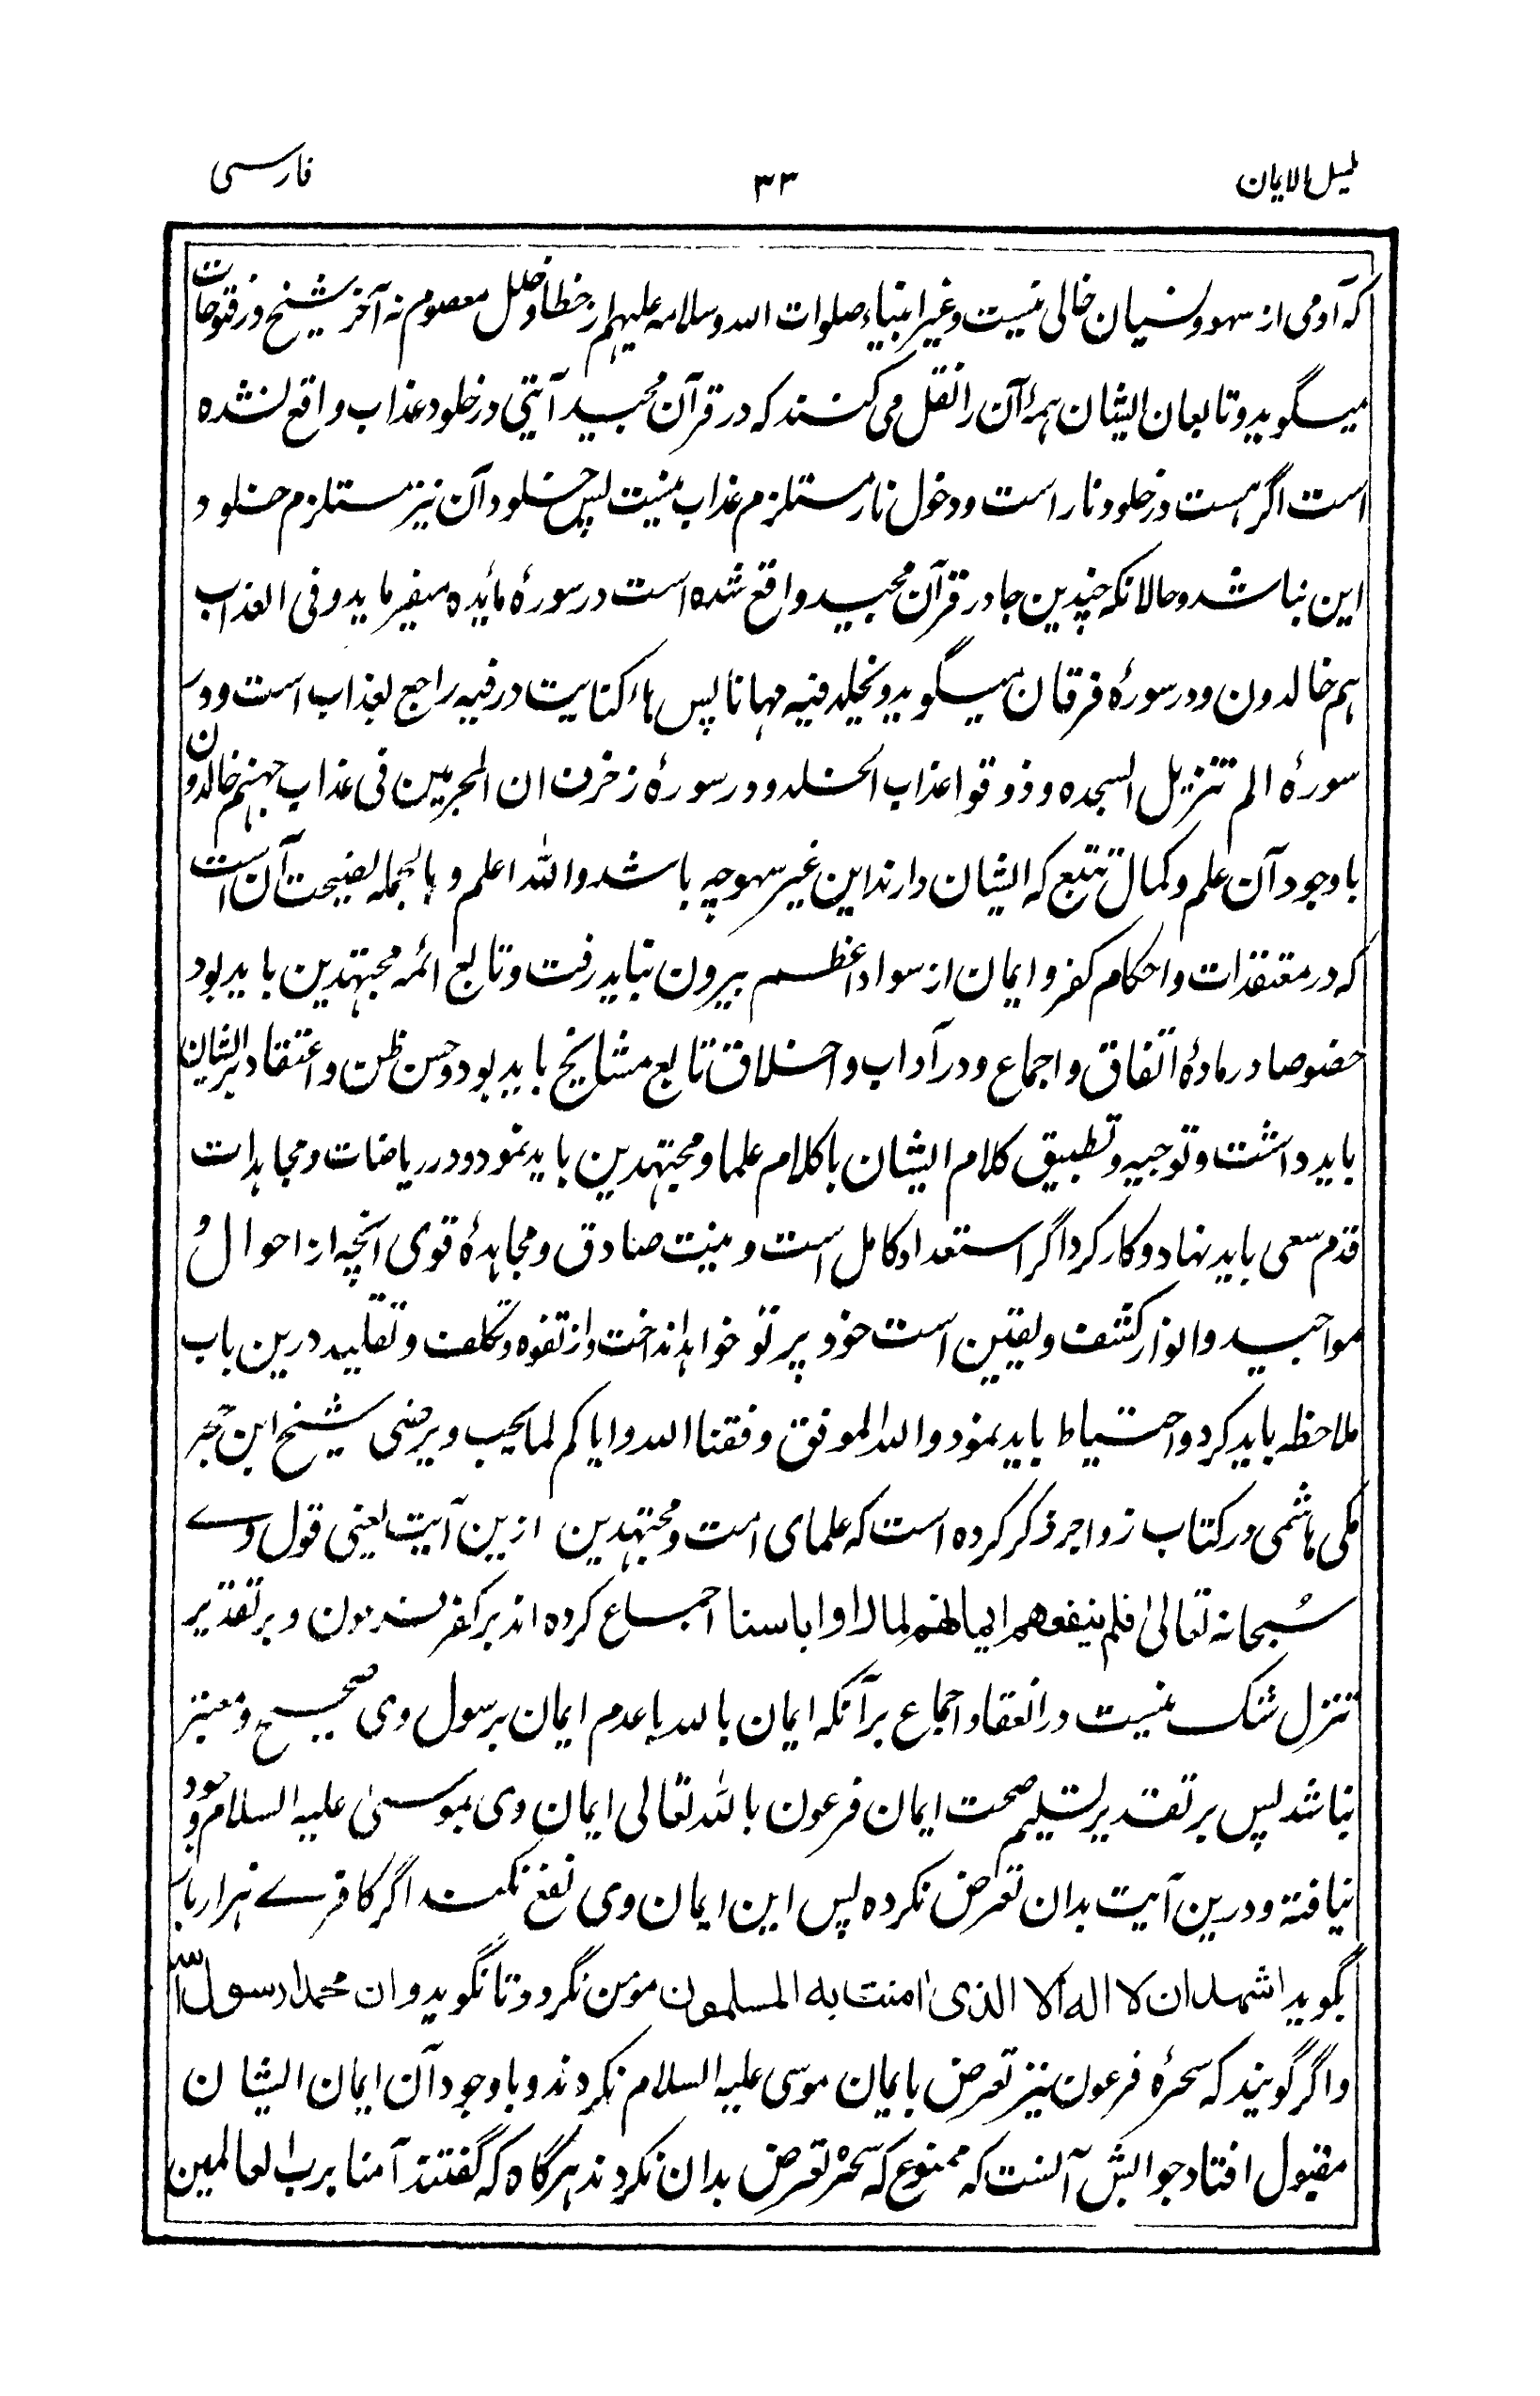 تکمیل الایمان ۳۳ فارسی
که آدمی از سهو و نسیان خالی نیست و غیر انبیاء صلوات الله و سلامه علیهم از خطا و خلل معصوم نه آخر شیخ در فتوحات
میگوید و تابعان ایشان همه آن را نقل می کنند که در قرآن مجید آیتی در خلود عذاب واقع نشده
است اگر هست در خلود نار است و دخول نار مستلزم عذاب نیست پس خلود آن نیز مستلزم خلود
این نباشد و حالانکه چندین جا در قرآن مجید واقع شده است در سورهٔ مائده میفرماید و فی العذاب
هم خالدون و در سورهٔ فرقان میگوید و یخلد فیه مهانا پس هاء کنایت در فیه راجع بعذاب است و در
سورهٔ الم تنزیل السجده و ذوقوا عذاب الخلد و در سورهٔ زخرف ان المجرمین فی عذاب جهنم خالدون
با وجود آن علم و کمال تتبع که ایشان دارند این غیر سهو چه باشد والله اعلم و بالجمله نصیحت آن است
که در معتقدات و احکام کفر و ایمان از سواد اعظم بیرون نباید رفت و تابع ائمه مجتهدین باید بود
خصوصا در مادهٔ اتفاق و اجماع و در آداب و اخلاق تابع مشایخ باید بود و حسن ظن و اعتقاد بر ایشان
باید داشت و توجیه و تطبیق کلام ایشان با کلام علما و مجتهدین باید نمود و در ریاضات و مجاهدات
قدم سعی باید نهاد و کار کرد اگر استعداد کامل است و نیت صادق و مجاهدهٔ قوی انچه از احوال و
مواجید و انوار کشف و یقین است خود پرتو خواهد انداخت و از تفوه و تکلف و تقلید درین باب
ملاحظه باید کرد و احتیاط باید نمود والله الموفق وفقنا الله و ایاکم لما یحب و یرضی شیخ ابن حجر
مکی هاشمی در کتاب زواجر ذکر کرده است که علمای امت و مجتهدین ازین آیت یعنی قول وے
سبحانه تعالیٰ فلم ینفعهم ایمانهم لما راوا باسنا اجماع کرده اند بر کفر فرعون و بر تقدیر
تنزل شک نیست در انعقاد اجماع بر آنکه ایمان بالله با عدم ایمان برسول وی صحیح و معتبر
نباشد پس بر تقدیر تسلیم صحت ایمان فرعون بالله تعالی ایمان وی بموسیٰ علیه السلام وجود
نیافته و درین آیت بدان تعرض نکرده پس این ایمان وی نفع نکند اگر کافرے هزار بار
بگوید اشهد ان لا اله الا الذی امنت به المسلمون مومن نگردد تا نگوید و ان محمدا رسول الله
و اگر گویند که سحرهٔ فرعون نیز تعرض بایمان موسی علیه السلام نکردند و با وجود آن ایمان ایشان
مقبول افتاد جوابش آنست که ممنوع که سحره تعرض بدان نکردند هرگاه که گفتند آمنا برب العالمین